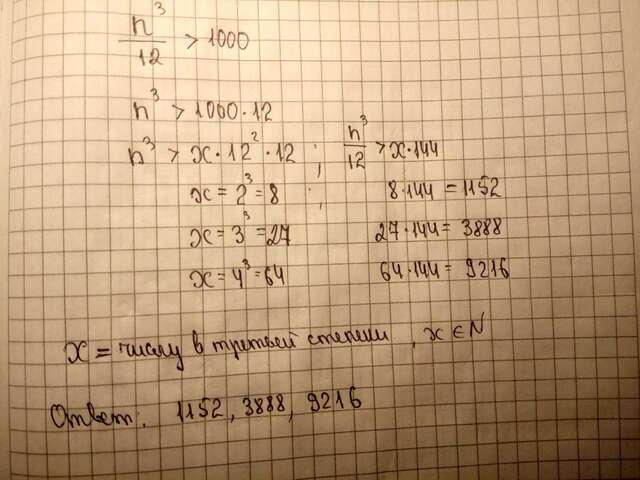 n³/12 > 1000
n³ > 1000·12
n³ > x·12²·12; n³/12 > x·144
x = 2³ = 8; 8·144 = 1152
x = 3³ = 27 27·144 = 3888
x = 4³ = 64 64·144 = 9216
x = числу в третьей степени, x ∈ N
Ответ: 1152, 3888, 9216